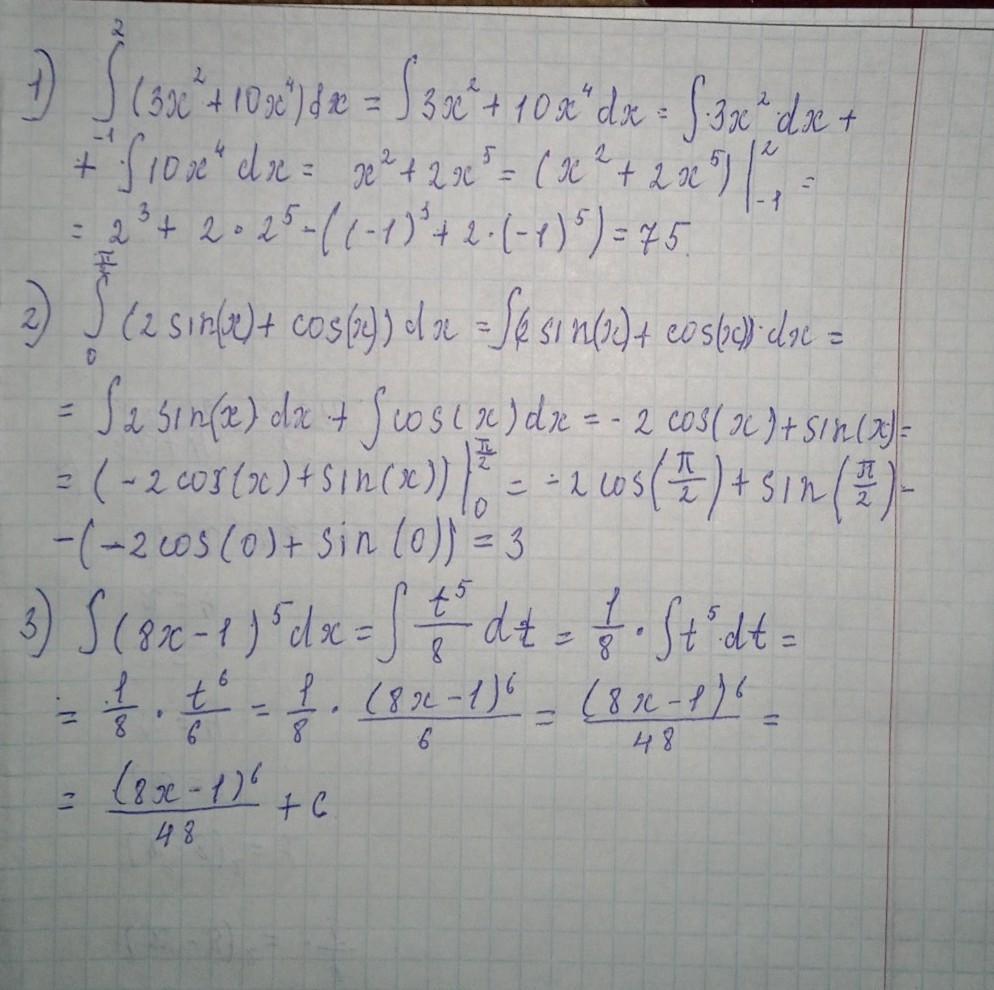 1) ∫₋₁² (3x² + 10x⁴) dx = ∫ 3x² + 10x⁴ dx = ∫ · 3x² · dx +
+ · ∫ 10x⁴ dx = x² + 2x⁵ = (x² + 2x⁵) |₋₁² =
= 2³ + 2 · 2⁵ - ((-1)³ + 2 · (-1)⁵) = 75.
2) ∫₀^π (2 sin(x) + cos(x)) dx = ∫(2 sin(x) + cos(x)) · dx =
= ∫ 2 sin(x) dx + ∫ cos(x) dx = - 2 cos(x) + sin(x) =
= (-2 cos(x) + sin(x)) |₀^(π/2) = -2 cos(π/2) + sin(π/2) -
-(-2 cos(0) + sin(0)) = 3
3) ∫ (8x - 1)⁵ dx = ∫ t⁵/8 dt = 1/8 · ∫ t⁵ · dt =
= 1/8 · t⁶/6 = 1/8 · (8x - 1)⁶/6 = (8x - 1)⁶/48 =
= (8x - 1)⁶/48 + C